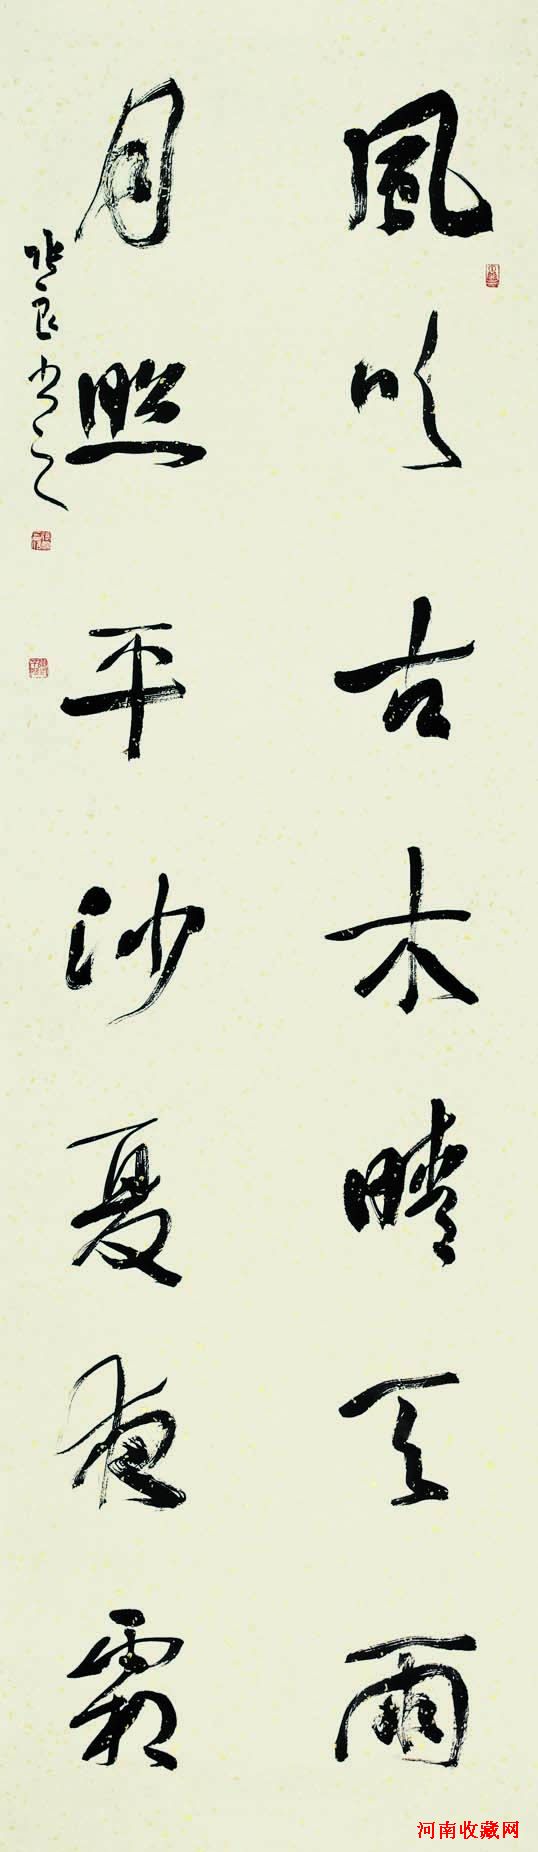 風吹古木晴天雨
月照平沙夏夜霜
張良書之
河南收藏网